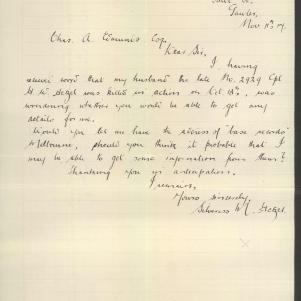 Gawler,
Nov 11th 17.
Chas. A. Edmunds Esq.
Dear Sir,
I having
received word that my husband the late No. 2929 Cpl
H. W. was killed in action on Oct , was
wondering whether you would be able to get any
details for me.
Would you let me have the address of "base records"
Melbourne, should you think it probable that I
may be able to get some information from them?
Thanking you in anticipation.
I remain,
Yours sincerely,